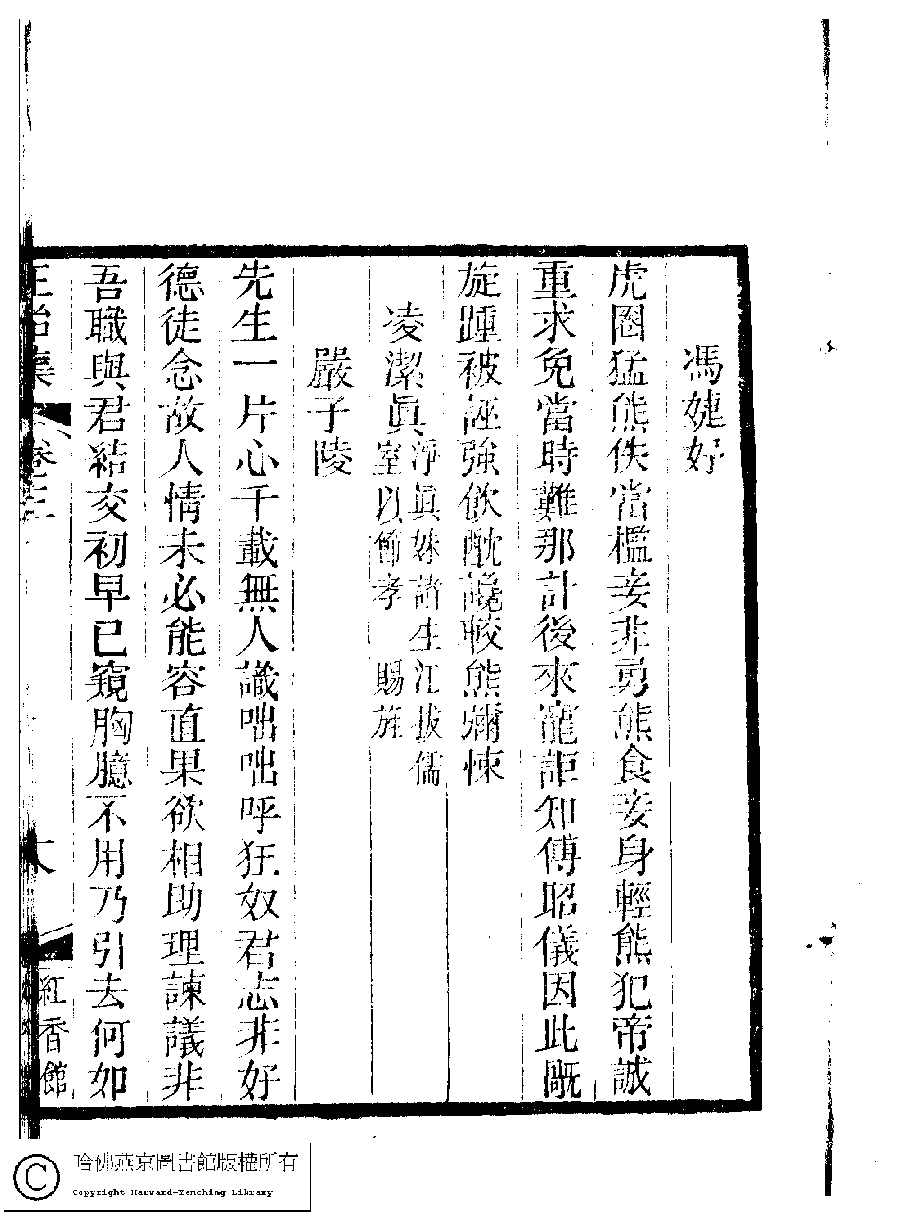 馮婕妤
虎圈猛熊佚當檻妾非勇熊食妾身輕熊犯帝誠
重求免當時難那計後來寵詎知傅昭儀因此厩
旋踵被誣強飲酖讒較熊㺒悚
凌潔眞淨眞妹諸生江拔儒
室以節孝 賜旌
嚴子陵
先生一片心千載無人識咄咄呼狂奴君志非好
德徒念故人情未必能容直果欲相助理諫議非
吾職與君結交初早已窺胸臆不用乃引去何如
卷三
紅香館
哈佛燕京圖書館版權所有
Copyright Harvard-Yenching Library